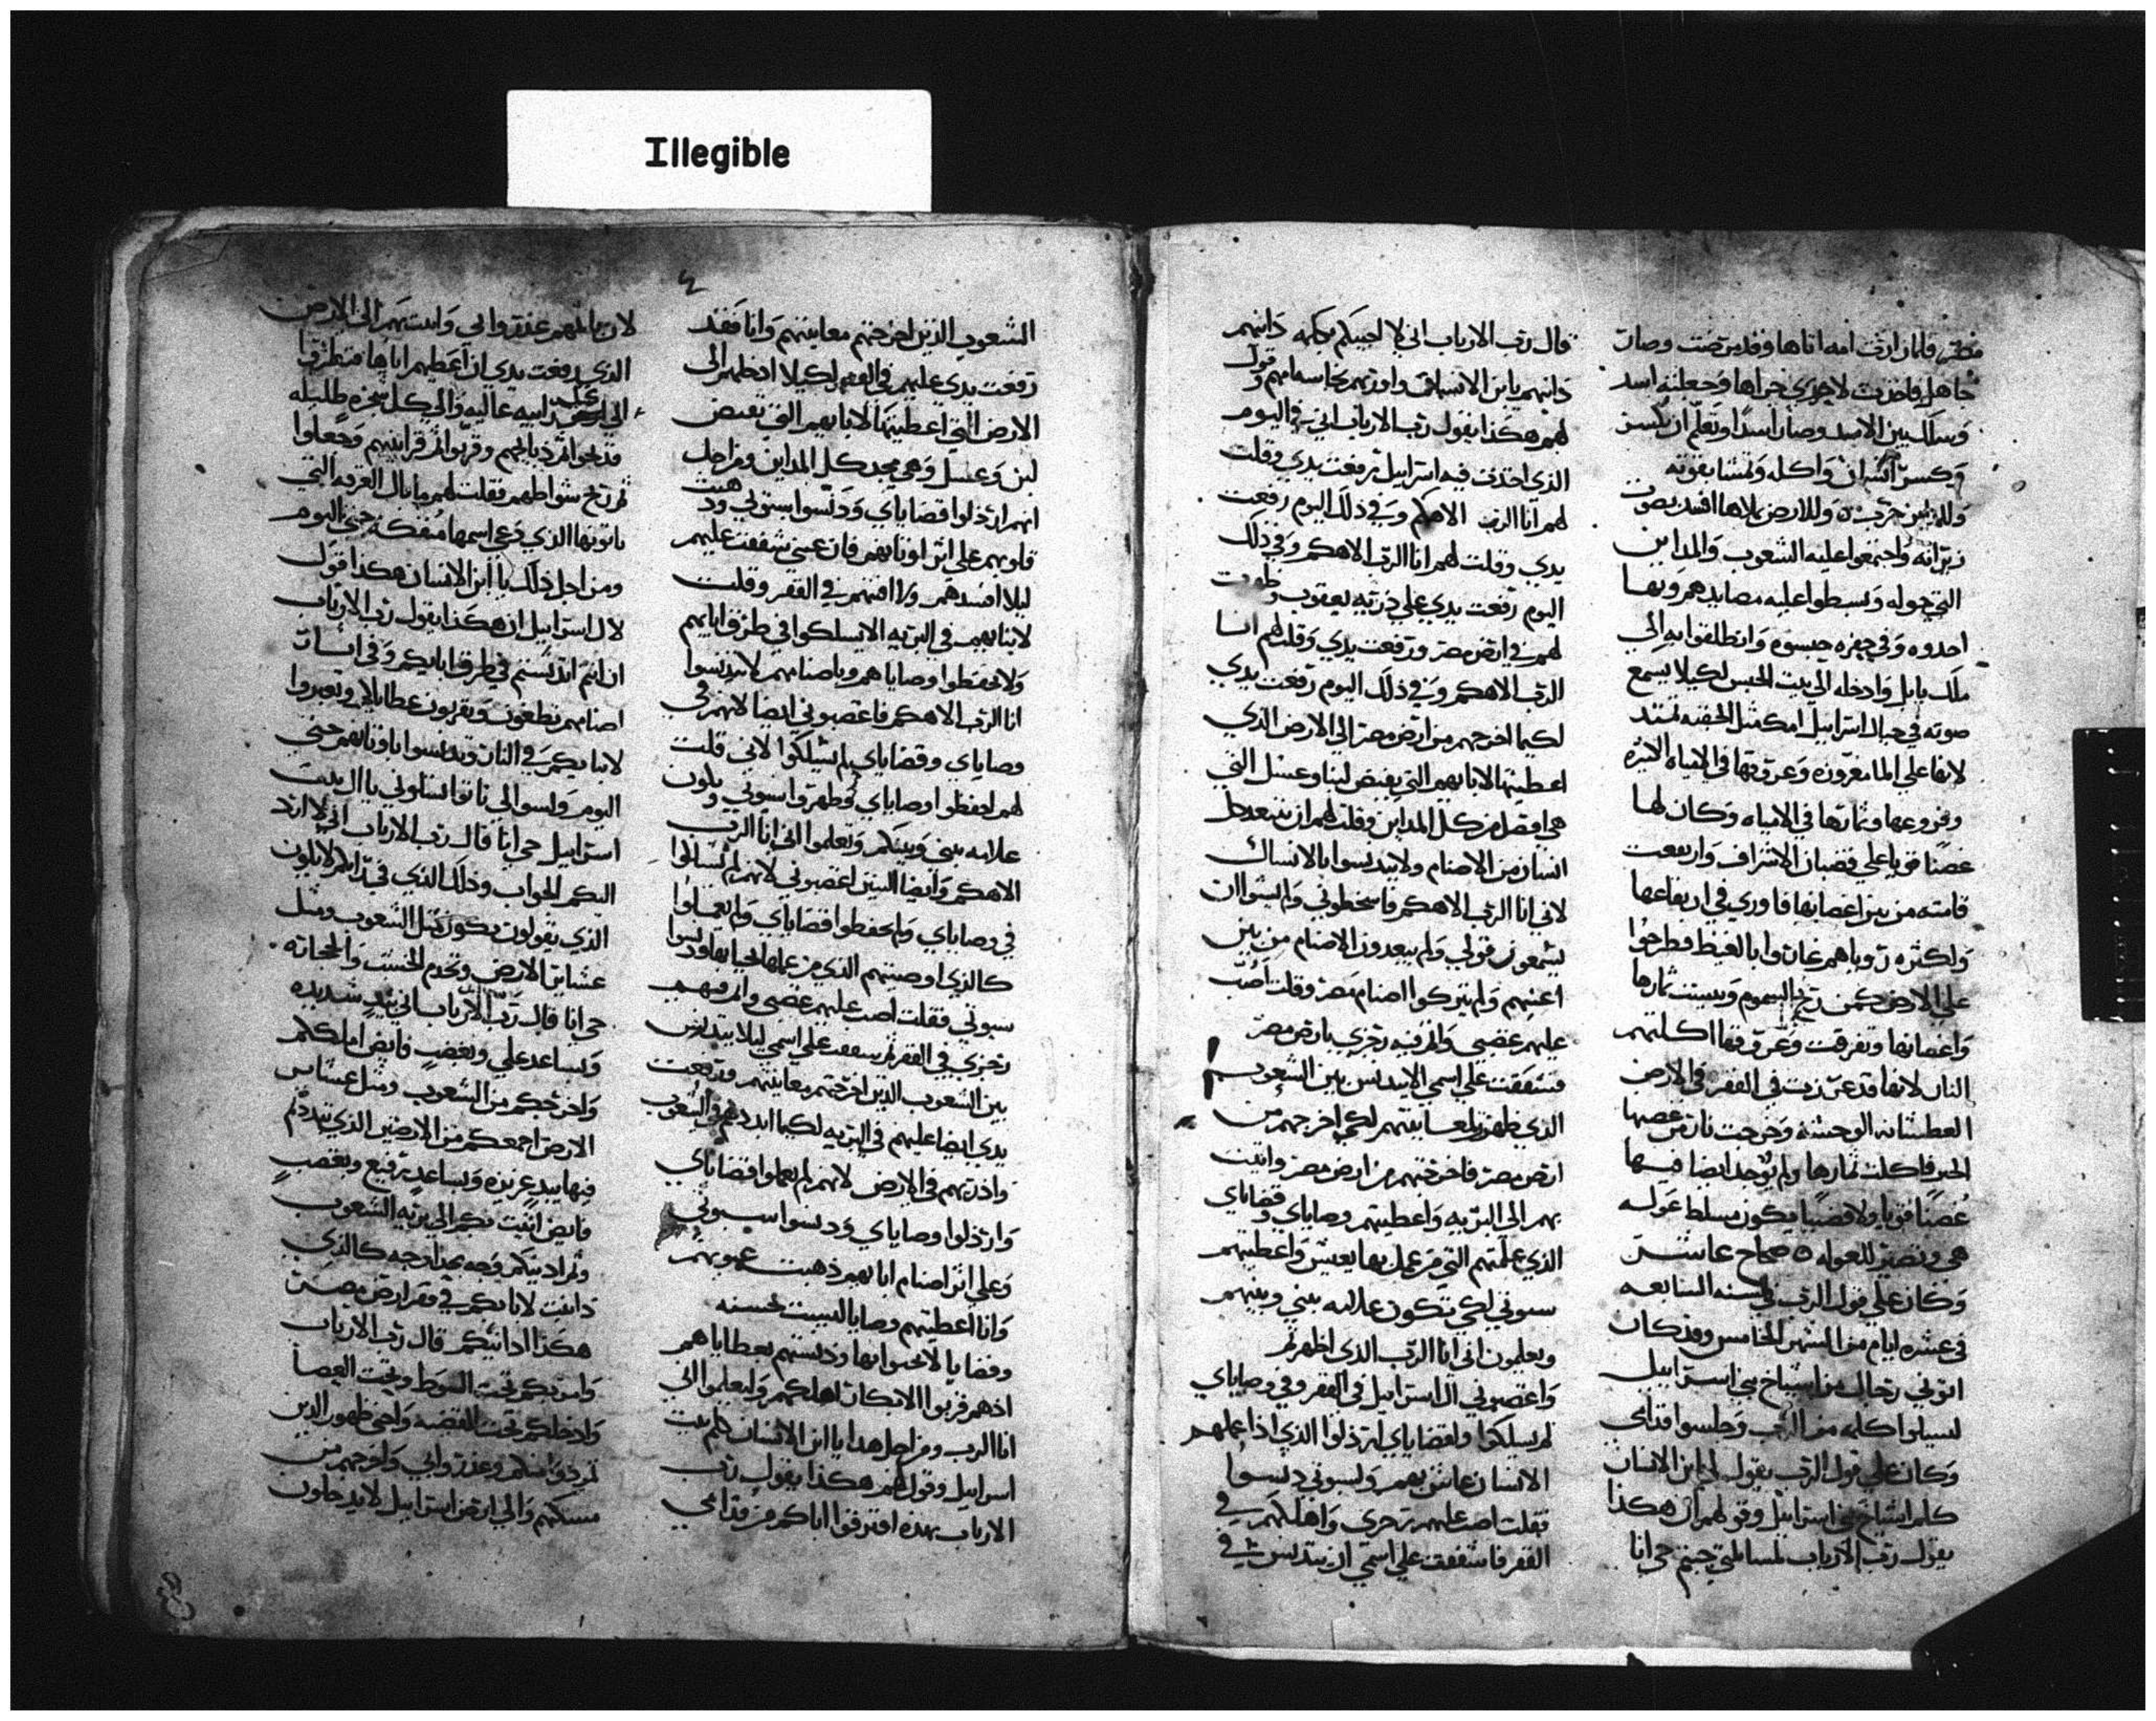 Illegible
مصر فلما رات امه اناها وقد مرضت وصارت
جاهل فاخذت لاخري من جراها وجعلته اسد
وسلك بين الاسد وصار اسدا وتعلم ان يكسر
وكسر انسان واكله وتمشا بقوته
وللارض بملاها افسد بصوت
زيرانه واجتمعوا عليه الشعوب والمداين
التي حوله وبسطوا عليه مصايدهم وبها
اخدوه وفي حفره حبسوه وانطلقوا به الي
ملك بابل وادخله الي بيت الحبس لكيلا يسمع
صوته في جبال اسراييل امك مثل الجفنه تمتد
لانها علي الما مغروزه وعروقها في المياه الكثيره
وفروعها وثمارها في المياه وكان لها
غصنا قويا علي قضبان الاشراف وارتفعت
قامته من بين اغصانها فاوري في ارتفاعها
ولكثره زوياهم غاروا بالغيظ فطرحوا
علي الارض كمن ريح السموم ويبست ثمارها
واغصانها وتفرقت وعروقها اكلتهم
النار لانها قد غرزت في القفر في الارض
العطشانه الوحشه وخرجت نار من غصنها
الخير فاكلت ثمارها ولم يوجد ايضا فيها
غصنا قويا ولا قضيبا يكون مسلط عوله
هي وتصير للعوله ه صحاح عاشر
وكان علي قول الرب في السنه السابعه
في عشره ايام من الشهر الخامس وقد كان
اتوني رجال من اشياخ بني اسراييل
ليسيلوا كلمه من الرب وجلسوا قدامي
وكان علي قول الرب يقول لي ابن الانسان
كلم اشياخ بني اسراييل وقول لهم ان هكذا
يقول رب الارباب لمسايلتي جيتم حي انا
قال رب الارباب اني لا اجيبكم بكلمه دانيهم
دانيهم يا ابن الانسان واورتهم نجاسه ابايهم وقول
لهم هكذا يقول رب الارباب اني في اليوم
الذي اخترت فيه اسراييل رفعت يدي وقلت
لهم انا الرب الاهكم وفي ذلك اليوم رفعت
يدي وقلت لهم انا الرب الاهكم وفي ذلك
اليوم رفعت يدي علي ذريه يعقوب وظهرت
لهم في ارض مصر ورفعت يدي وقلت لهم انا
الرب الاهكم وفي ذلك اليوم رفعت يدي
لكيما اخرجهم من ارض مصر الي الارض الذي
اعطيتها لابايهم التي يفيض لبنا وعسل التي
هي افضل من كل المداين وقلت لهم ان يتبعد كل
انسان من الاصنام ولا يتدنسوا بالانساك
لاني انا الرب الاهكم فاسخطوني ولم يشوا ان
يسمعون قولي ولم يبعدون الاصنام من بين
اعينهم ولم يتركوا اصنام مصر وقلت اصب
عليهم غضبي وافنيه رجزي بارض مصر
فشفقت علي اسمي الا يتدنس بين الشعوب
الذي ظهرت لمعاينتهم لكي اخرجهم من
ارض مصر فاخرجتهم من ارض مصر واتيت
بهم الي البريه واعطيتهم وصاياي وقضاياي
الذي علمتهم التي من عمل بها يعيش واعطيتهم
سبوتي لكي تكون علامه بيني وبينهم
ويعلمون اني انا الرب الذي اطهرهم
واغضبوني ال اسراييل في القفر وفي وصاياي
لم يسلكوا ولقضاياي ارذلوا الذي اذا عملهم
الانسان عاش بهم ولسبوتي دنسوا
فقلت اصب عليهم رجزي واهلكهم في
القفر فاشفقت علي اسمي ان يتدنس في
الشعوب الذين اخرجتهم معاينتهم وانا فقد
رفعت يدي عليهم في القفر لكيلا ادخلهم الي
الارض التي اعطيتها لابايهم التي تفيض
لبن وعسل وهي مجد كل المداين ومن اجل
انهم ارذلوا قضاياي ودنسوا سبوتي وذهبت
قلوبهم علي اثر اوثانهم فان عيني شفقت عليهم
ليلا افسدهم ولا افنيهم في القفر وقلت
لابنايهم في البريه الا يسلكوا في طرق ابايهم
ولا تحفظوا وصاياهم وباصنامهم لا تتدنسوا
انا الرب الاهكم فاغضبوني ايضا لانهم في
وصاياي وقضاياي لم يسلكوا لاني قلت
لهم احفظوا وصاياي وطهروا سبوتي وتكون
علامه بيني وبينكم وتعلموا اني انا الرب
الاهكم وايضا البنين اغضبوني لانهم لم يسالكوا
في وصاياي ولم يحفظوا قضاياي ولم يعملوا
كالذي اوصيتهم الذي من عملها يحيا بها ودنسوا
سبوتي فقلت اصب عليهم غضبي وافنيهم
رجزي في القفر ثم شفقت علي اسمي ليلا يتدنس
بين الشعوب الذين اخرجتهم معاينتهم ورفعت
يدي ايضا عليهم في البريه لكيما ابددهم في الشعوب
واذريهم في الارض لانهم لم يعملوا قضاياي
وارذلوا وصاياي ودنسوا سبوتي
وعلي اثر اصنام ابايهم ذهبت عيونهم
وانا اعطيتهم وصايا ليست بحسنه
وقضايا لا تحيوا بها ودنستهم بعطاياهم
اذ هم قربوا الابكار اهلكهم وليعلموا اني
انا الرب ومن اجل هدا يا ابن الانسان كلم بيت
اسراييل وقول لهم هكذا يقول رب
الارباب بهذه افترقوا اباكم من قدامي
لان بانهم غدروا بي واتيتهم الي الارض
الذي رفعت يدي ان اعطيهم اياها فنظروا
الي كل رابيه عاليه والي كل شجره ظليله
فدبحوا ثم ذبايحهم وقربوا ثم قرابينهم وجعلوا
ثم ريح شواطهم فقلت لهم ما بال الغرفه التي
ياتونها الذي دعي اسمها مفكه حتي اليوم
ومن اجل ذلك يا ابن الانسان هكذا قول
لال اسراييل ان هكذا يقول رب الارباب
ان انتم اتدنستم في طرق ابايكم وفي اثار
اصنامهم تطغون وتقربون عطاياكم وتعبروا
لابنايكم في النار وتدنسوا باوثانهم حتي
اليوم وليسوا الي تاتوا تسالوني يا ال بيت
اسراييل حي انا قال رب الارباب اني لا ارد
اليكم الجواب وذلك الذي في قلبكم لا يكون
الذي يقولون نكون مثل الشعوب ومثل
عشاير الارض ونخدم الخشب والحجاره
حي انا قال رب الارباب اني بيد شديده
وبساعد علي وبغضب فايض املككم
واخرجكم من الشعوب ومثل عشاير
الارض اجمعكم من الارضين الذي تبددتم
فيها بيد عزيزه وبساعد رفيع وبغضب
فايض اتيت بكم الي بريه الشعوب
وثم ادينكم وجه بحذا وجه كالذي
دانيت لابايكم في قفر ارض مصر
هكذا ادانيكم قال رب الارباب
وامر بكم تحت السوط وتحت العصا
وادخلكم تحت القضيه وانحي ظهور الذين
تمردوا منكم وغدروا بي واخرجهم من
مسكنهم والي ارض اسراييل لا يدخلون